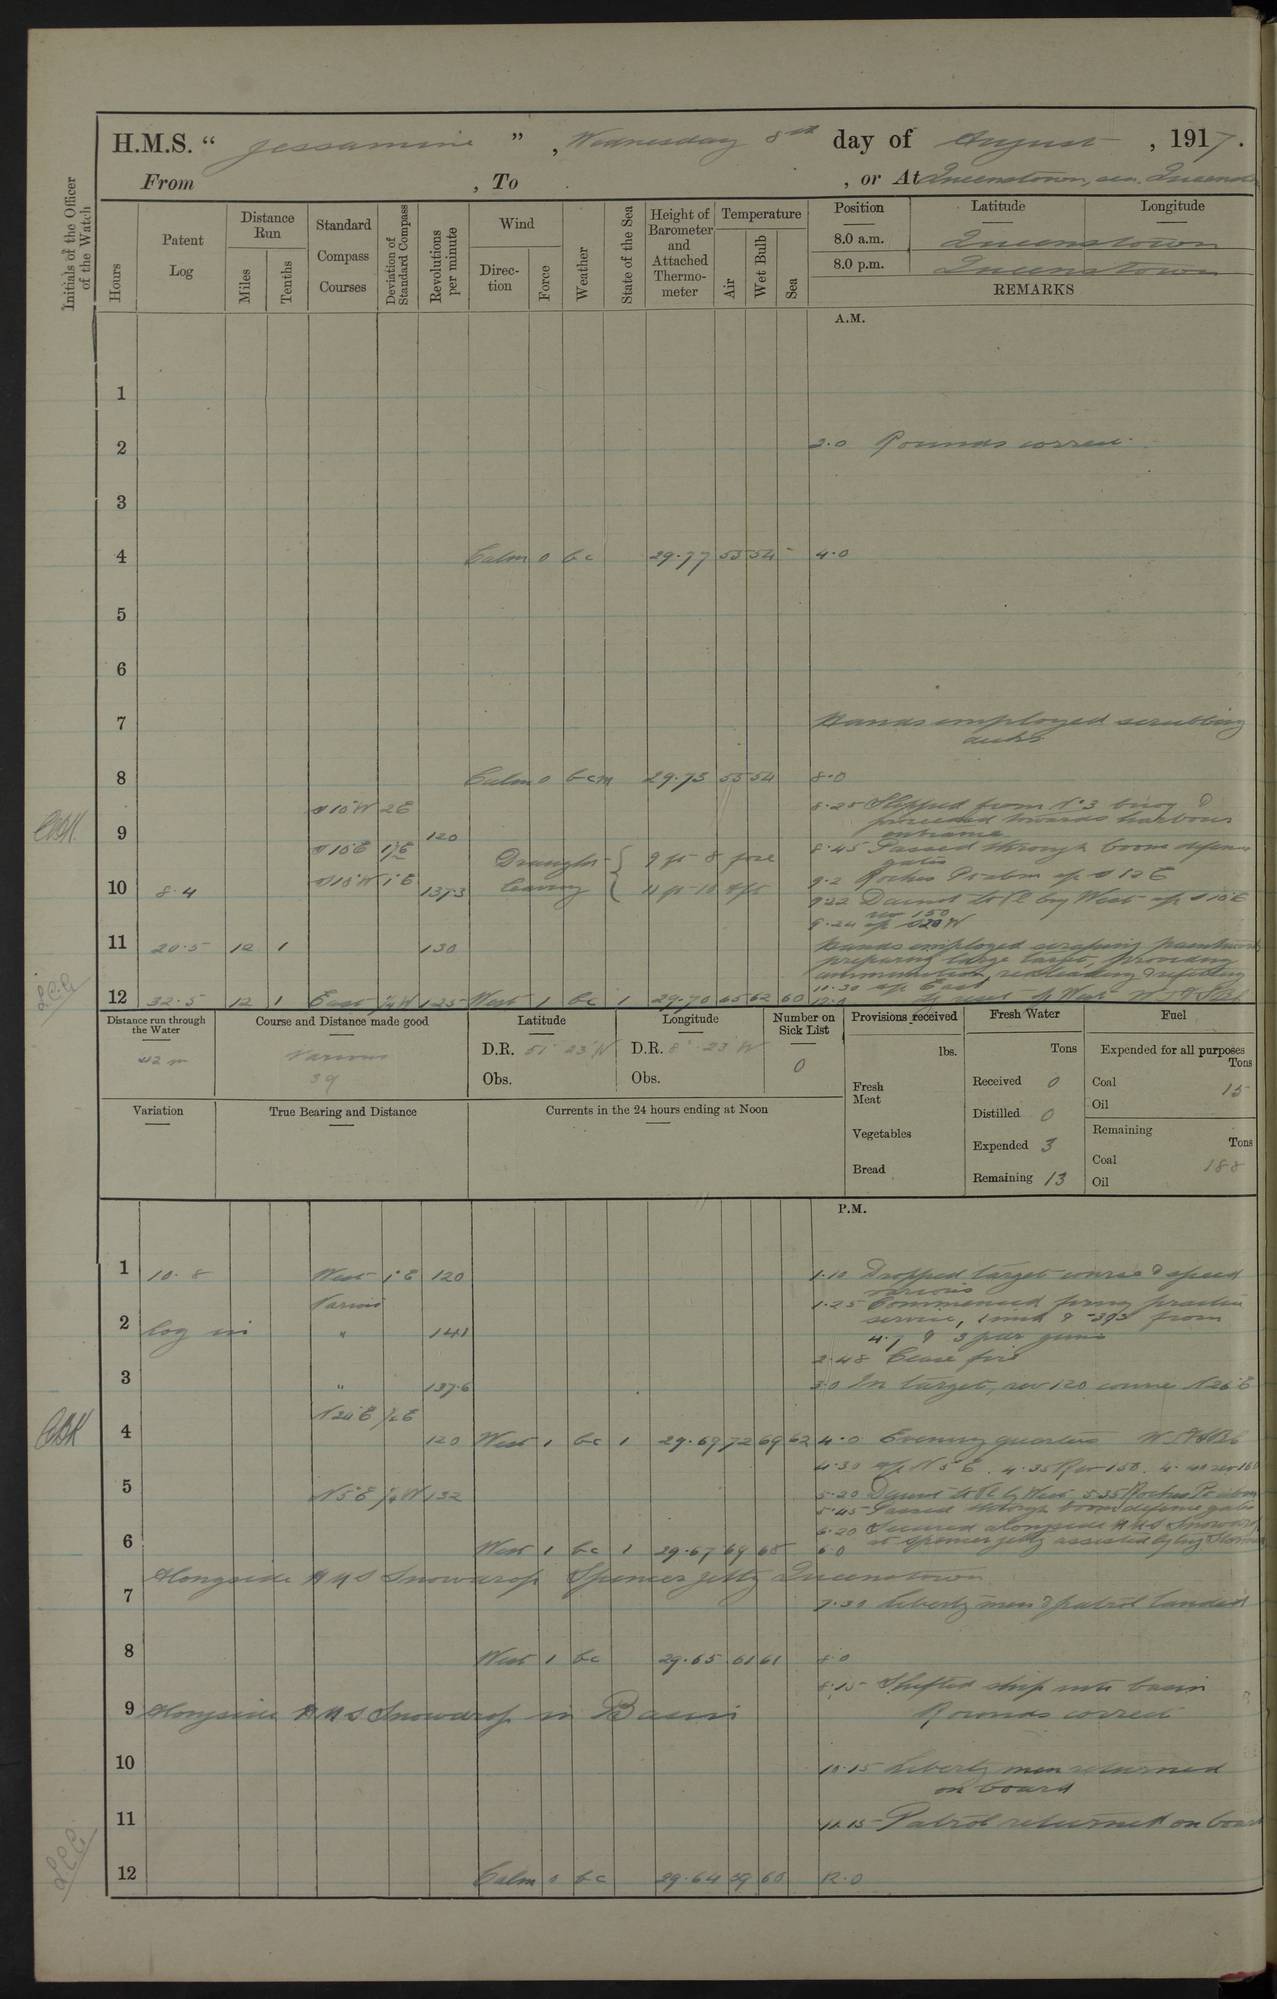 H.M.S. “ Jessamine ” , Wednesday 8th day of August , 1917.
From , To , or At Queenstown, sea, Queenstown
Initials of the Officer of the Watch
Hours
Patent Log
Distance Run
Miles
Tenths
Standard Compass Courses
Deviation of Standard Compass
Revolutions per minute
Wind
Direction
Force
Weather
State of the Sea
Height of Barometer and Attached Thermometer
Temperature
Air
Wet Bulb
Sea
Position Latitude Longitude
8.0 a.m. Queenstown
8.0 p.m. Queenstown
REMARKS
A.M.
1
2 2.0 Rounds correct
3
4 Calm 0 bc 29.77 55 54 - 4.0
5
6
7 Hands employed scrubbing
decks
8 Calm 0 bcm 29.73 55 54 8.0
S 10 W 2 E 8.25 Slipped from No 3 buoy &
proceeded towards harbour
9 120 entrance
S 10 E 8.45 Passed through boom defence
gates
Draught 9 ft 8 fore 9.2 Roches Pt abm S 12 E
10 8.4 S 15 W 1 E 137.3 leaving 11 ft 10 aft
9.22 Daunt Lt Vl West S 10 E
rev 150
9.24 S 20 W
11 20.5 12 1 130 Hands employed scraping paintwork
preparing large target, providing
ammunition, redleading & refitting
10.30 East
12 32.5 12 1 East 1/4 W 125 West 1 bc 1 29.70 65 62 60 12.0 West
Distance run through the Water
42 m
Course and Distance made good
Various
39
Latitude
D.R. 51° 23' N
Obs.
Longitude
D.R. 8° 23' W
Obs.
Number on Sick List
0
Provisions received
lbs.
Fresh Meat
Vegetables
Bread
Fresh Water
Tons
Received 0
Distilled 0
Expended 3
Remaining 13
Fuel
Expended for all purposes
Tons
Coal 15
Oil
Remaining
Tons
Coal 188
Oil
Variation
True Bearing and Distance
Currents in the 24 hours ending at Noon
P.M.
1 10.8 West 1° E 120 1.10 Dropped target course & speed
various
Various 1.25 Commenced firing practice
2 log in " 141 service, from
4.7 & 3 pdr guns
2.48 Cease fire
3 " 137.6 3.0 In target, rev 120 course N 26 E
N 26 E 1/2 E
4 120 West 1 bc 1 29.69 72 69 62 4.0 Evening quarters
4.30 N 5 E. 4.35 Rev 150. 4.40 rev 160
5 N 5 E 1/4 W 132 5.20 Daunt Lt Vl West 5.35 Roches Pt abm
5.45 Passed through boom defence gates
6.20 Secured alongside HMS Snowdrop
at Spencer jetty assisted by tug
6 West 1 bc 1 29.67 69 68 6.0
Alongside HMS Snowdrop Spencer jetty Queenstown
7 7.30 Liberty men & patrol landed
8 West 1 bc 29.65 61 61 8.0
8.15 Shifted ship into basin
9 Alongside HMS Snowdrop in Basin Rounds correct
10 10.15 Liberty men returned
on board
11 11.15 Patrol returned on board
12 Calm 0 bc 29.64 59 60 12.0